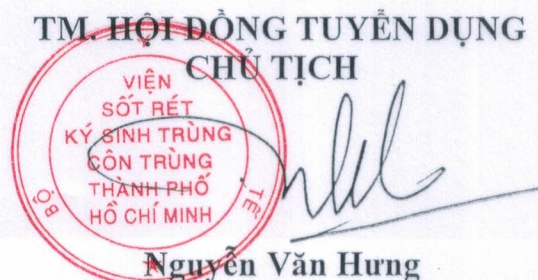 TM. HỘI ĐỒNG TUYỂN DỤNG
CHỦ TỊCH
VIỆN
SỐT RÉT
KÝ SINH TRÙNG
CÔN TRÙNG
THÀNH PHỐ
HỒ CHÍ MINH
BỘ
TẾ
Nguyễn Văn Hưng